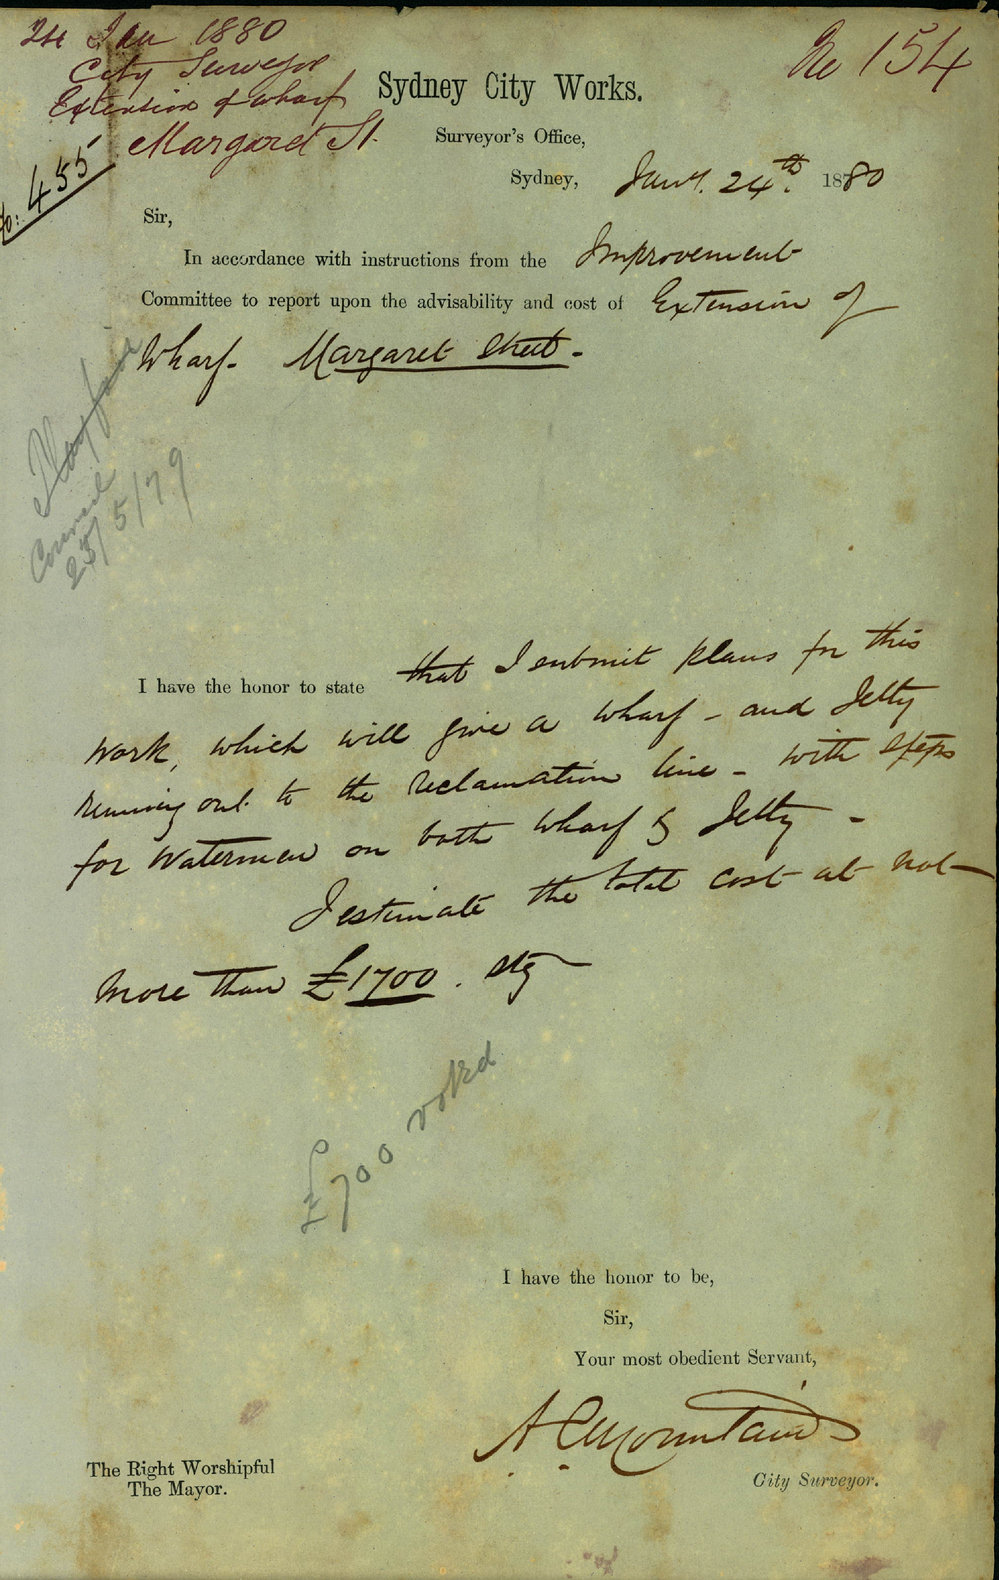 24 Jan 1880
City Surveyor
Extension of wharf
Margaret St.
No 154
No: 455
Sydney City Works.
Surveyor's Office,
Sydney, Jany. 24th. 1880
Sir,
In accordance with instructions from the Improvement
Committee to report upon the advisability and cost of Extension of
Wharf - Margaret Street -
Playfair
Council
25/5/79
I have the honor to state that I submit plans for this
work, which will give a wharf - and Jetty
running out to the reclamation line - with steps
for Watermen on both wharf & Jetty -
I estimate the total cost at not
more than £1700. stg
£700 voted
I have the honor to be,
Sir,
Your most obedient Servant,
A C Mountain
City Surveyor.
The Right Worshipful
The Mayor.